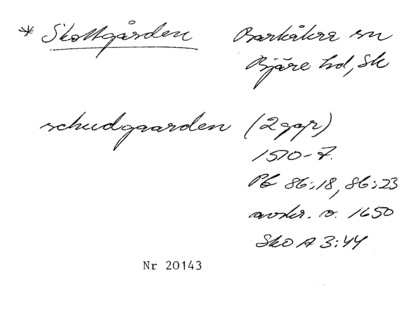 * Skottgården Barkåkra sn
Bjäre hd, Sk
schudgaarden (2 ggr)
1570-t.
Pb 86:18, 86:23
avskr. o. 1650
Sko A 3:44
Nr 20143